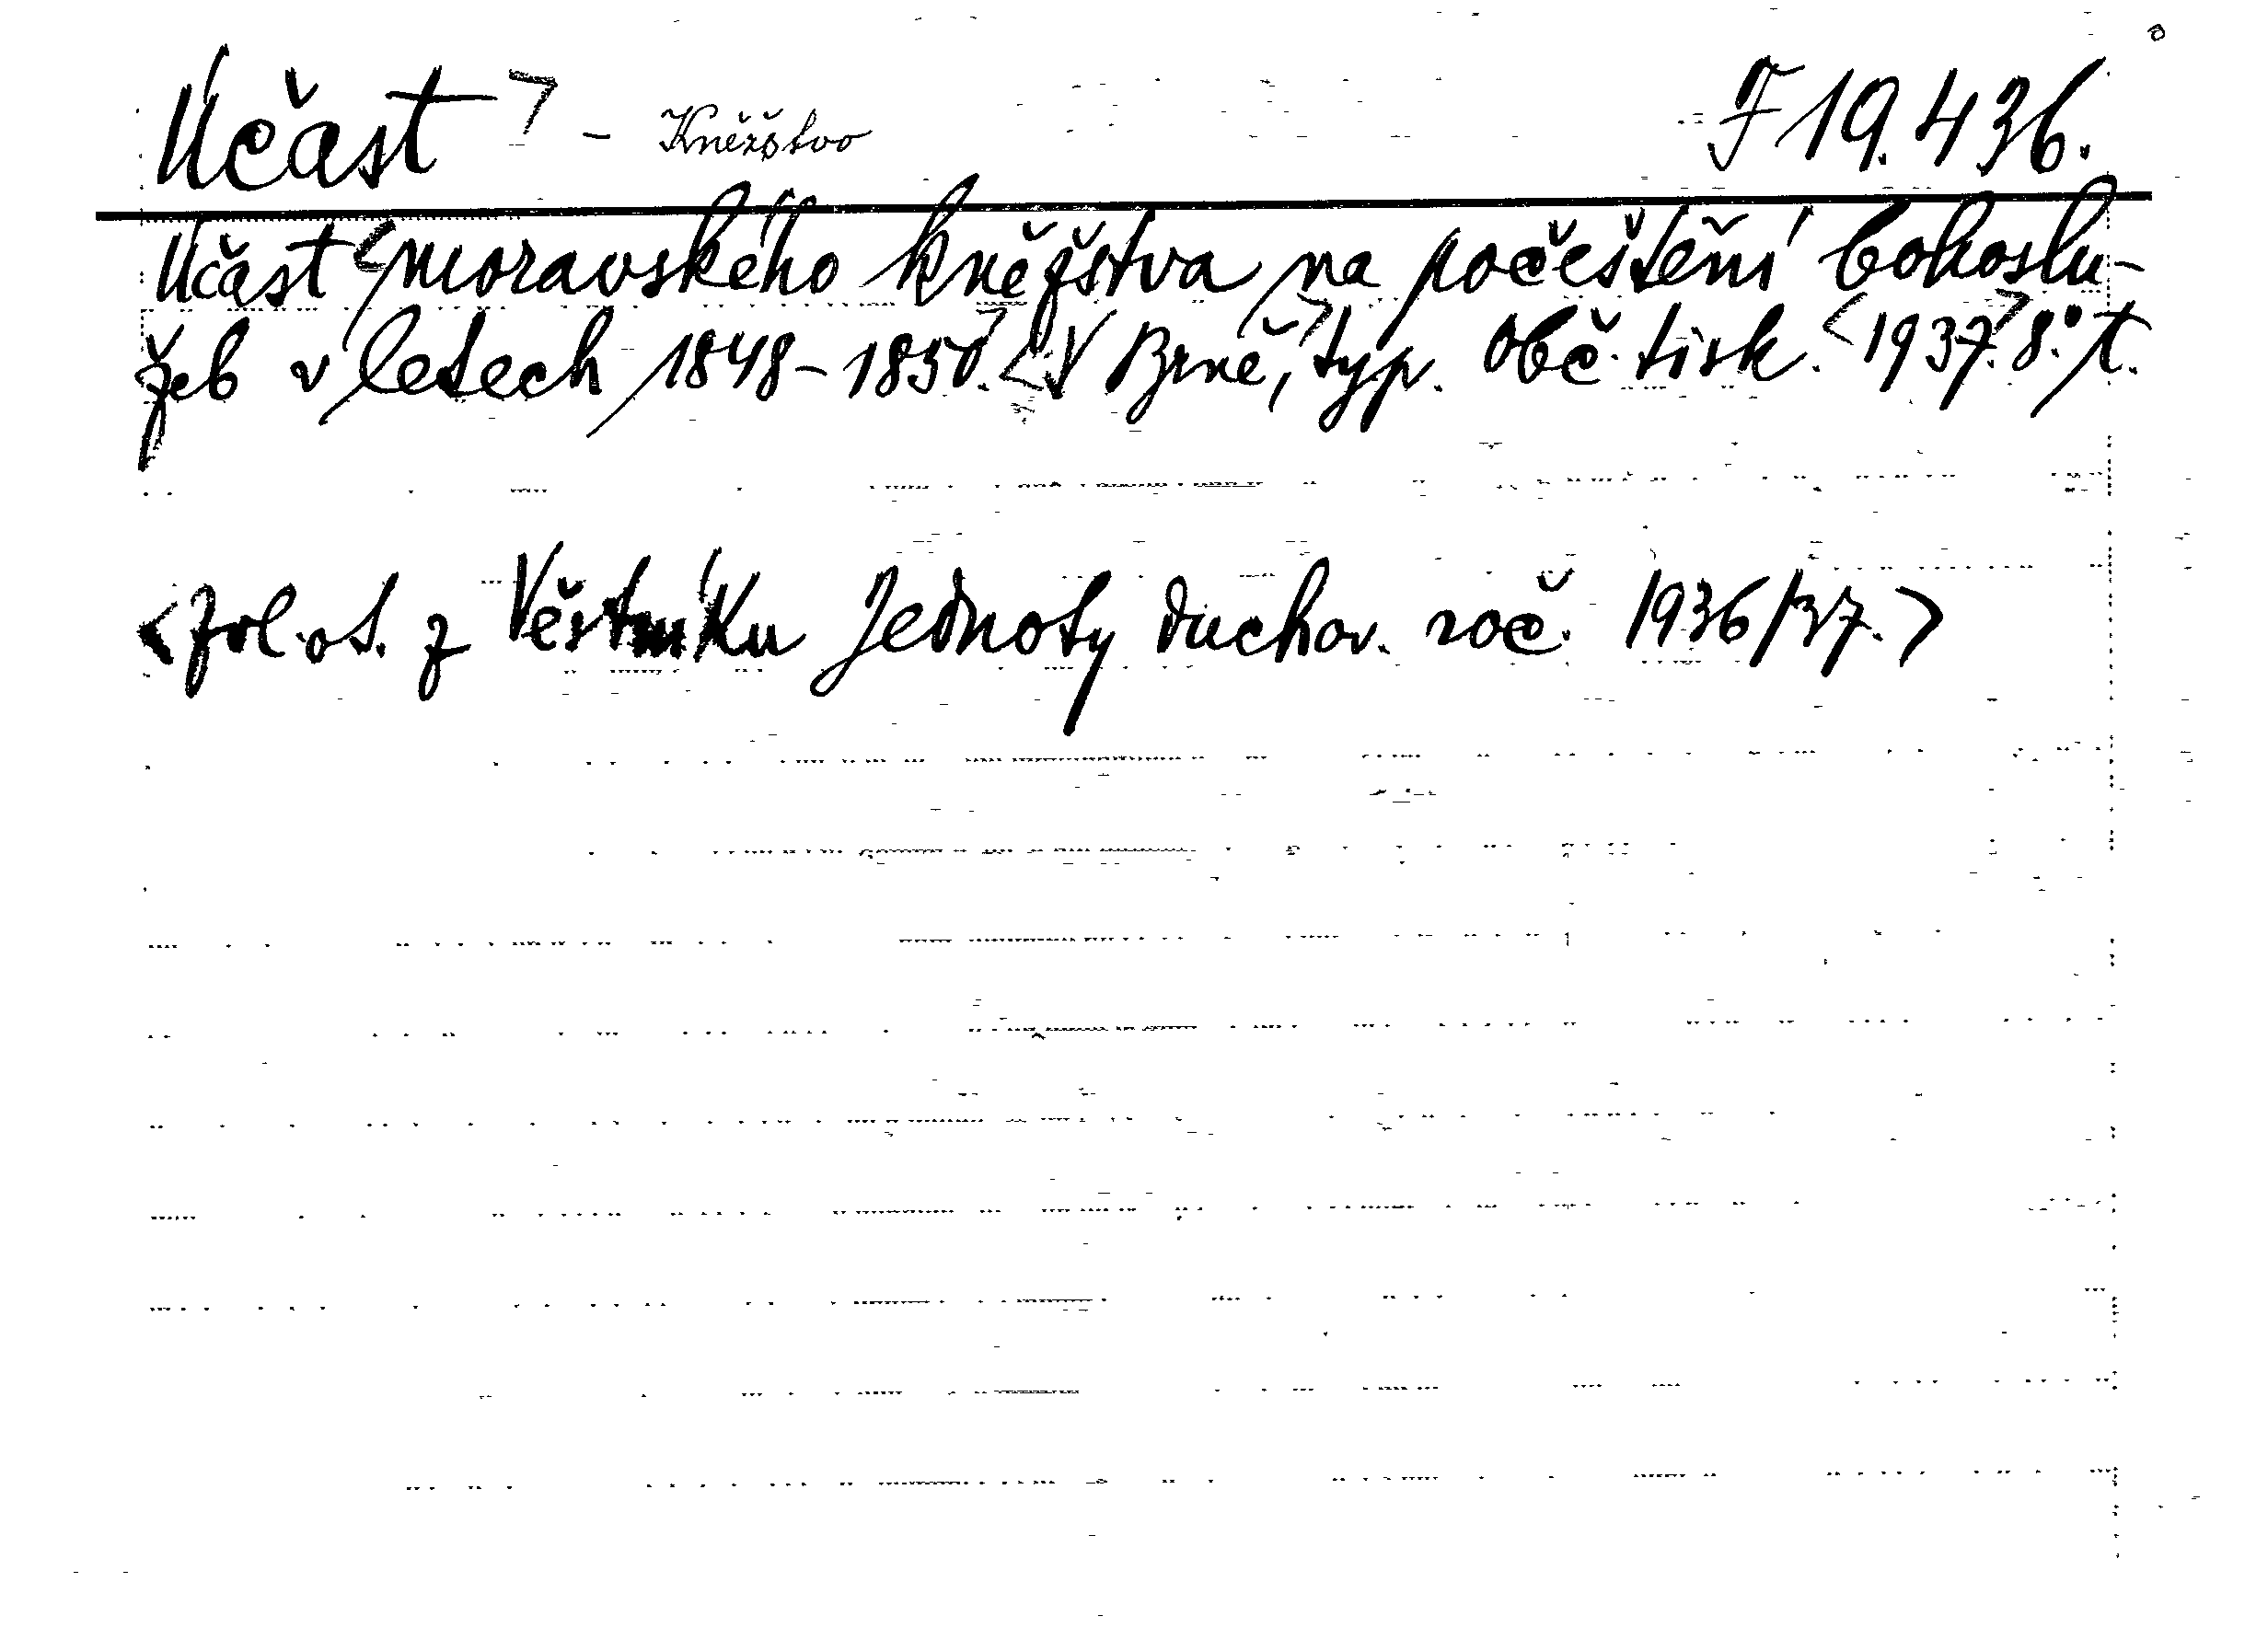 Účast - Kněžstvo F 19.436.
Účast moravského kněžstva na počeštění bohoslu-
žeb v letech 1848-1850. V Brně, typ. Obč. tisk. 1937. 8.° t.
<Zvl. ot. z Věstníku Jednoty duchov. roč. 1936/37.>